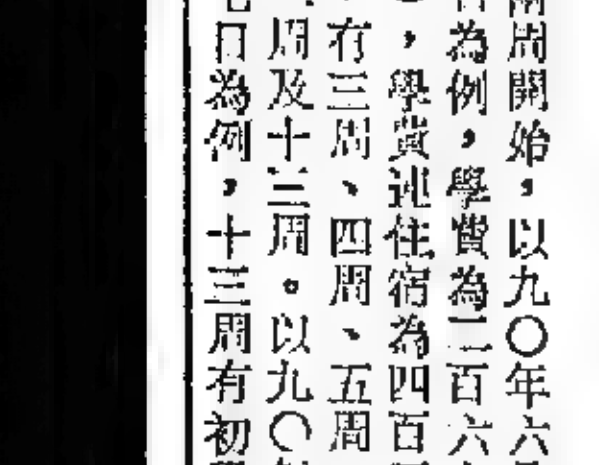 周開始，以九〇年六
為例，學費為二百六
，學費連住宿為四百
有三周、四周、五周
周及十三周。以九〇
日為例，十三周有初